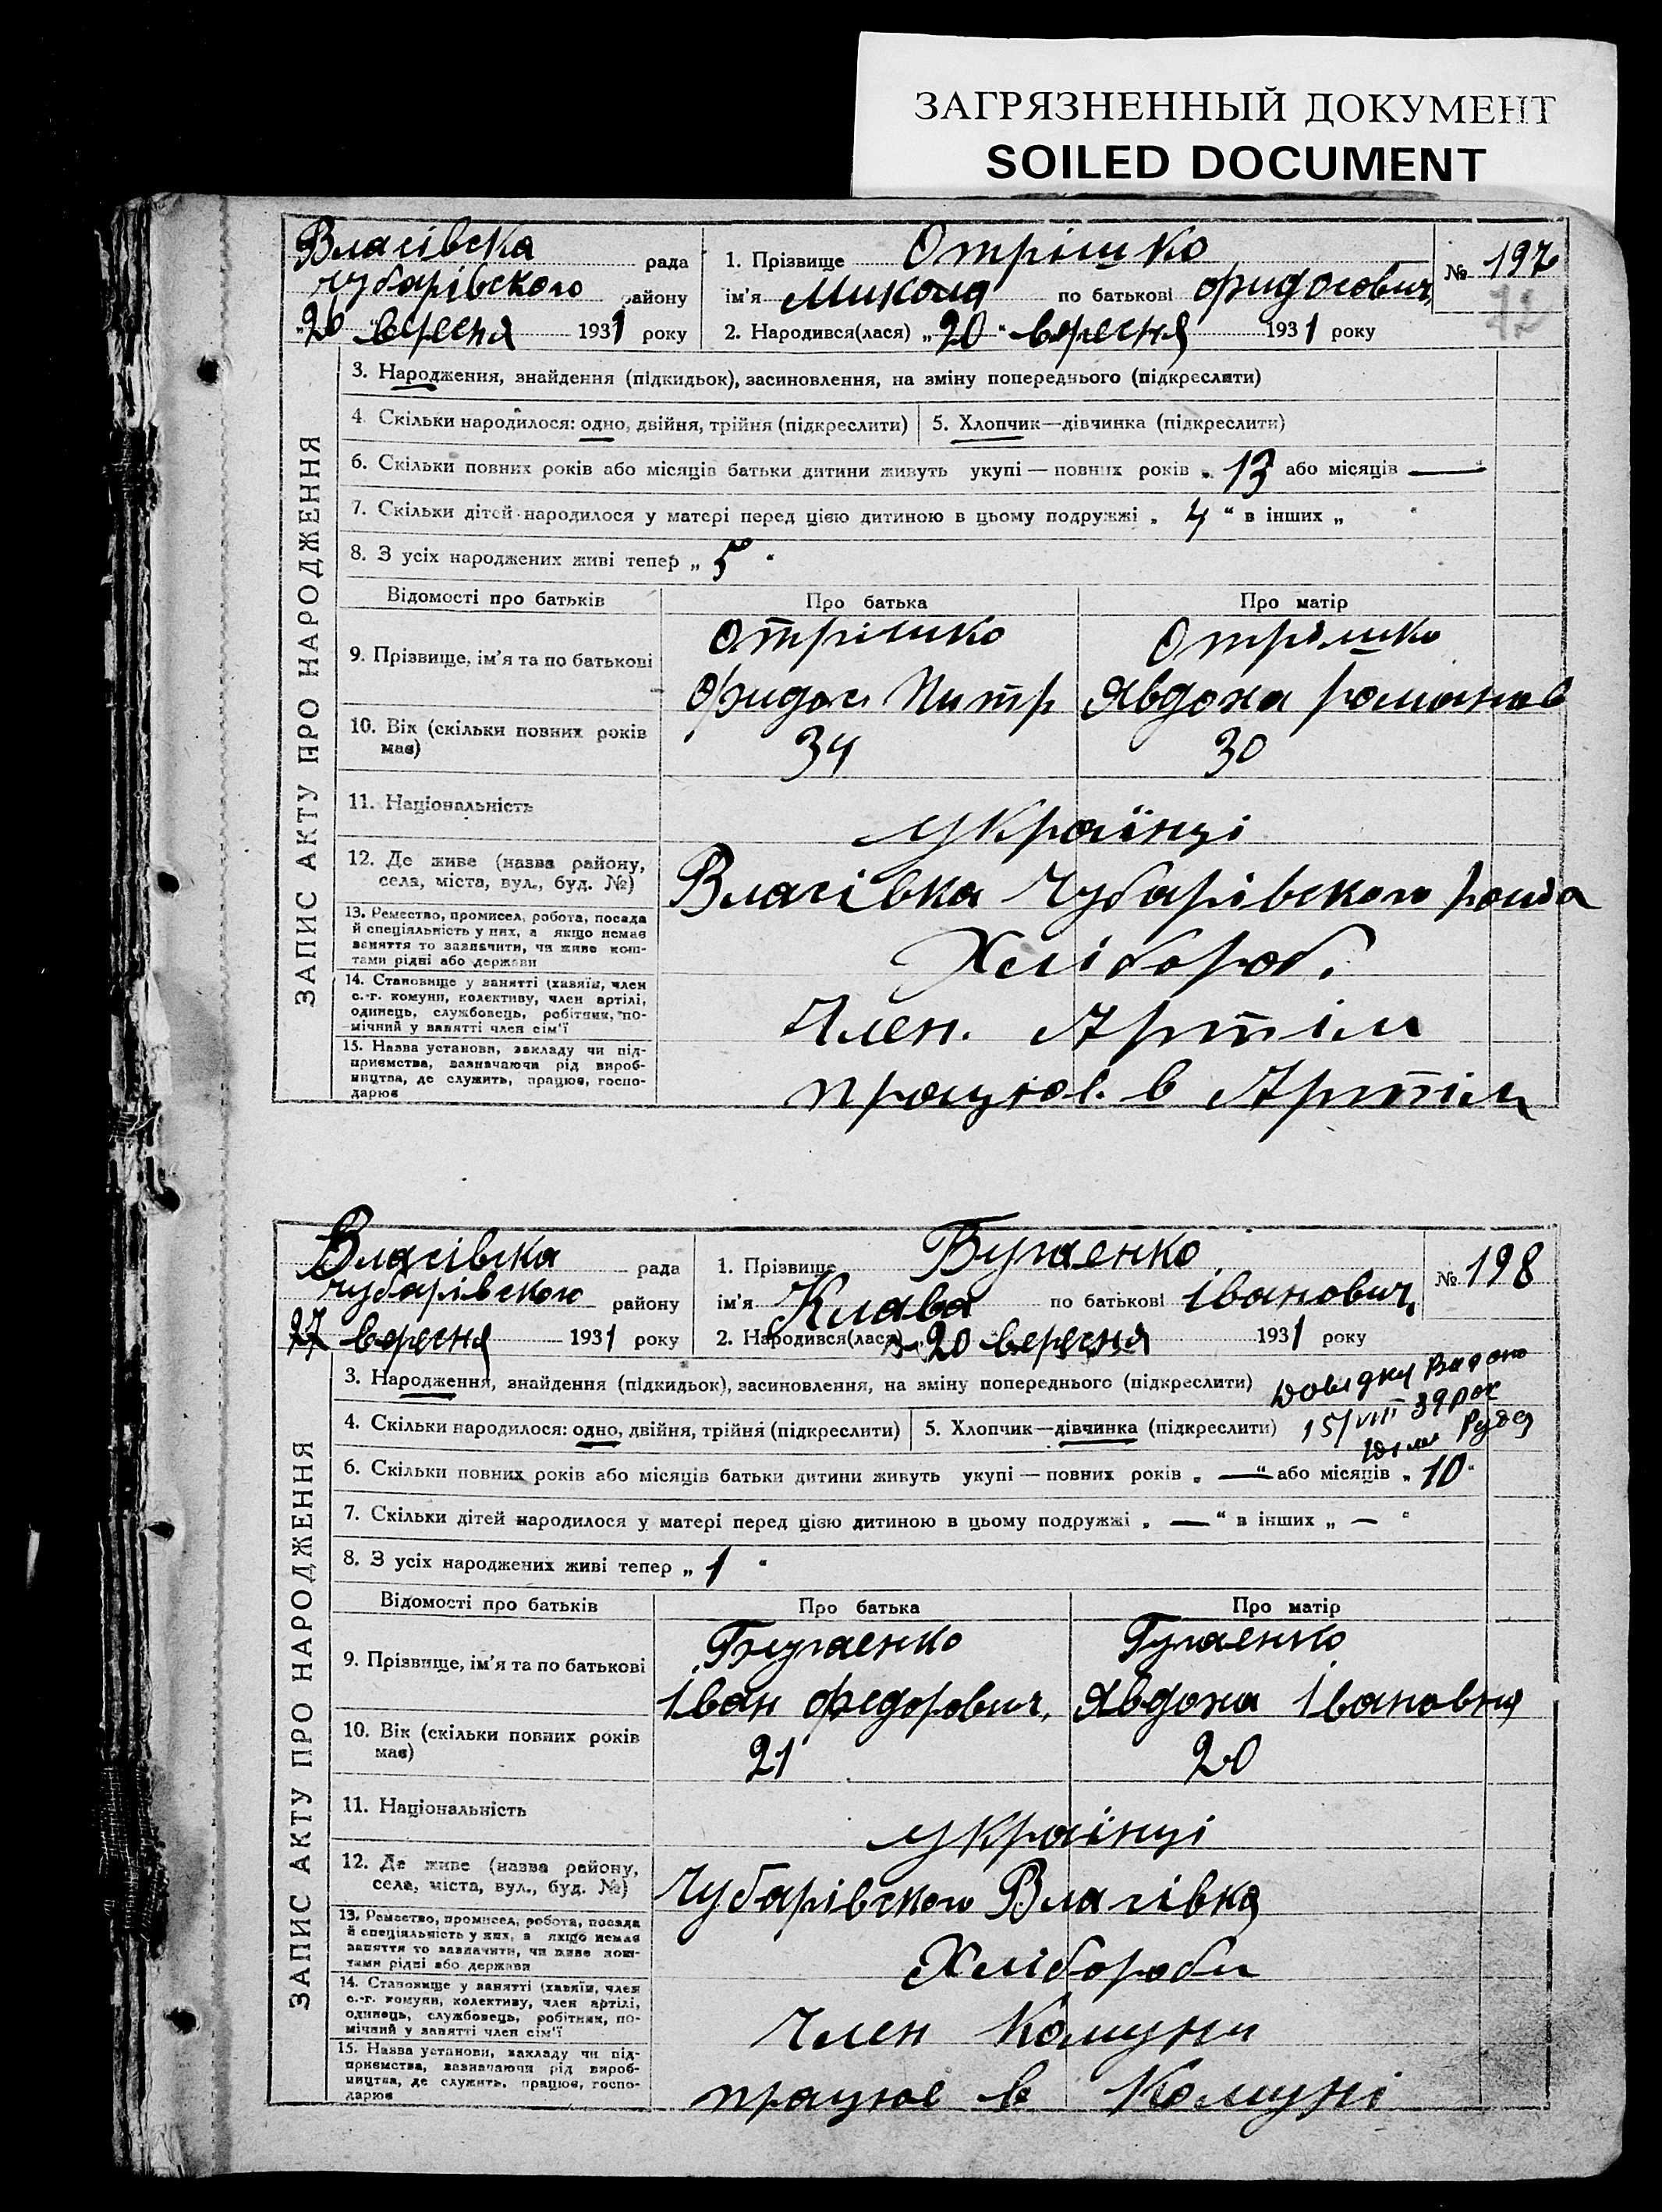 ЗАГРЯЗНЕННЫЙ ДОКУМЕНТ
SOILED DOCUMENT
Власівска рада
Чубарівского району
"26 вересня 1931 року
1. Прізвище Отрішко
ім'я Микола по батькові Фидосович
2. Народився(лася) „20" вересня 1931 року
№ 197
72
ЗАПИС АКТУ ПРО НАРОДЖЕННЯ
3. Народження, знайдення (підкидьок), засиновлення, на зміну попереднього (підкреслити)
4. Скільки народилося: одно, двійня, трійня (підкреслити) 5. Хлопчик—дівчинка (підкреслити)
6. Скільки повних років або місяців батьки дитини живуть укупі — повних років „ 13 або місяців — "
7. Скільки дітей народилося у матері перед цією дитиною в цьому подружжі „ 4 " в інших „ "
8. З усіх народжених живі тепер „ 5 "
Відомості про батьків Про батька Про матір
9. Прізвище, ім'я та по батькові
Отрішко Отрішко
Фидос Питр Явдоха Романов
10. Вік (скільки повних років має)
34 30
11. Національність
українці
12. Де живе (назва району, села, міста, вул., буд. №)
Власівка Чубарівского
13. Ремество, промисел, робота, посада й спеціяльність у них, а якщо немає заняття то зазначити, чи живе коштами рідні або держави
Хлібороб.
14. Становище у занятті (хазяїн, член с.-г. комуни, колективу, член артілі, одинець, службовець, робітник, помічний у занятті член сім'ї
Член. Артіли
15. Назва установи, закладу чи підприємства, зазначаючи рід виробництва, де служить, працює, господарює
працює. в Артіли
Власівска рада
Чубарівского району
27 вересня 1931 року
1. Прізвище Бугаенко
ім'я Клава по батькові Іванович
2. Народився(лася) „20 вересня 1931 року
№ 198
ЗАПИС АКТУ ПРО НАРОДЖЕННЯ
3. Народження, знайдення (підкидьок), засиновлення, на зміну попереднього (підкреслити)
Довидку Видано
15/VIII 39 рок
4. Скільки народилося: одно, двійня, трійня (підкреслити) 5. Хлопчик—дівчинка (підкреслити)
6. Скільки повних років або місяців батьки дитини живуть укупі — повних років „ — " або місяців „ 10 "
7. Скільки дітей народилося у матері перед цією дитиною в цьому подружжі „ — " в інших „ — "
8. З усіх народжених живі тепер „ 1 "
Відомості про батьків Про батька Про матір
9. Прізвище, ім'я та по батькові
Бугаенко Бугаенко
Іван Федорович, Явдоха Івановня
10. Вік (скільки повних років має)
21 20
11. Національність
українці
12. Де живе (назва району, села, міста, вул., буд. №)
Чубарівского Власівка
13. Ремество, промисел, робота, посада й спеціяльність у них, а якщо немає заняття то зазначити, чи живе коштами рідні або держави
Хлібороби
14. Становище у занятті (хазяїн, член с.-г. комуни, колективу, член артілі, одинець, службовець, робітник, помічний у занятті член сім'ї
Член Комуни
15. Назва установи, закладу чи підприємства, зазначаючи рід виробництва, де служить, працює, господарює
працює в Комуні